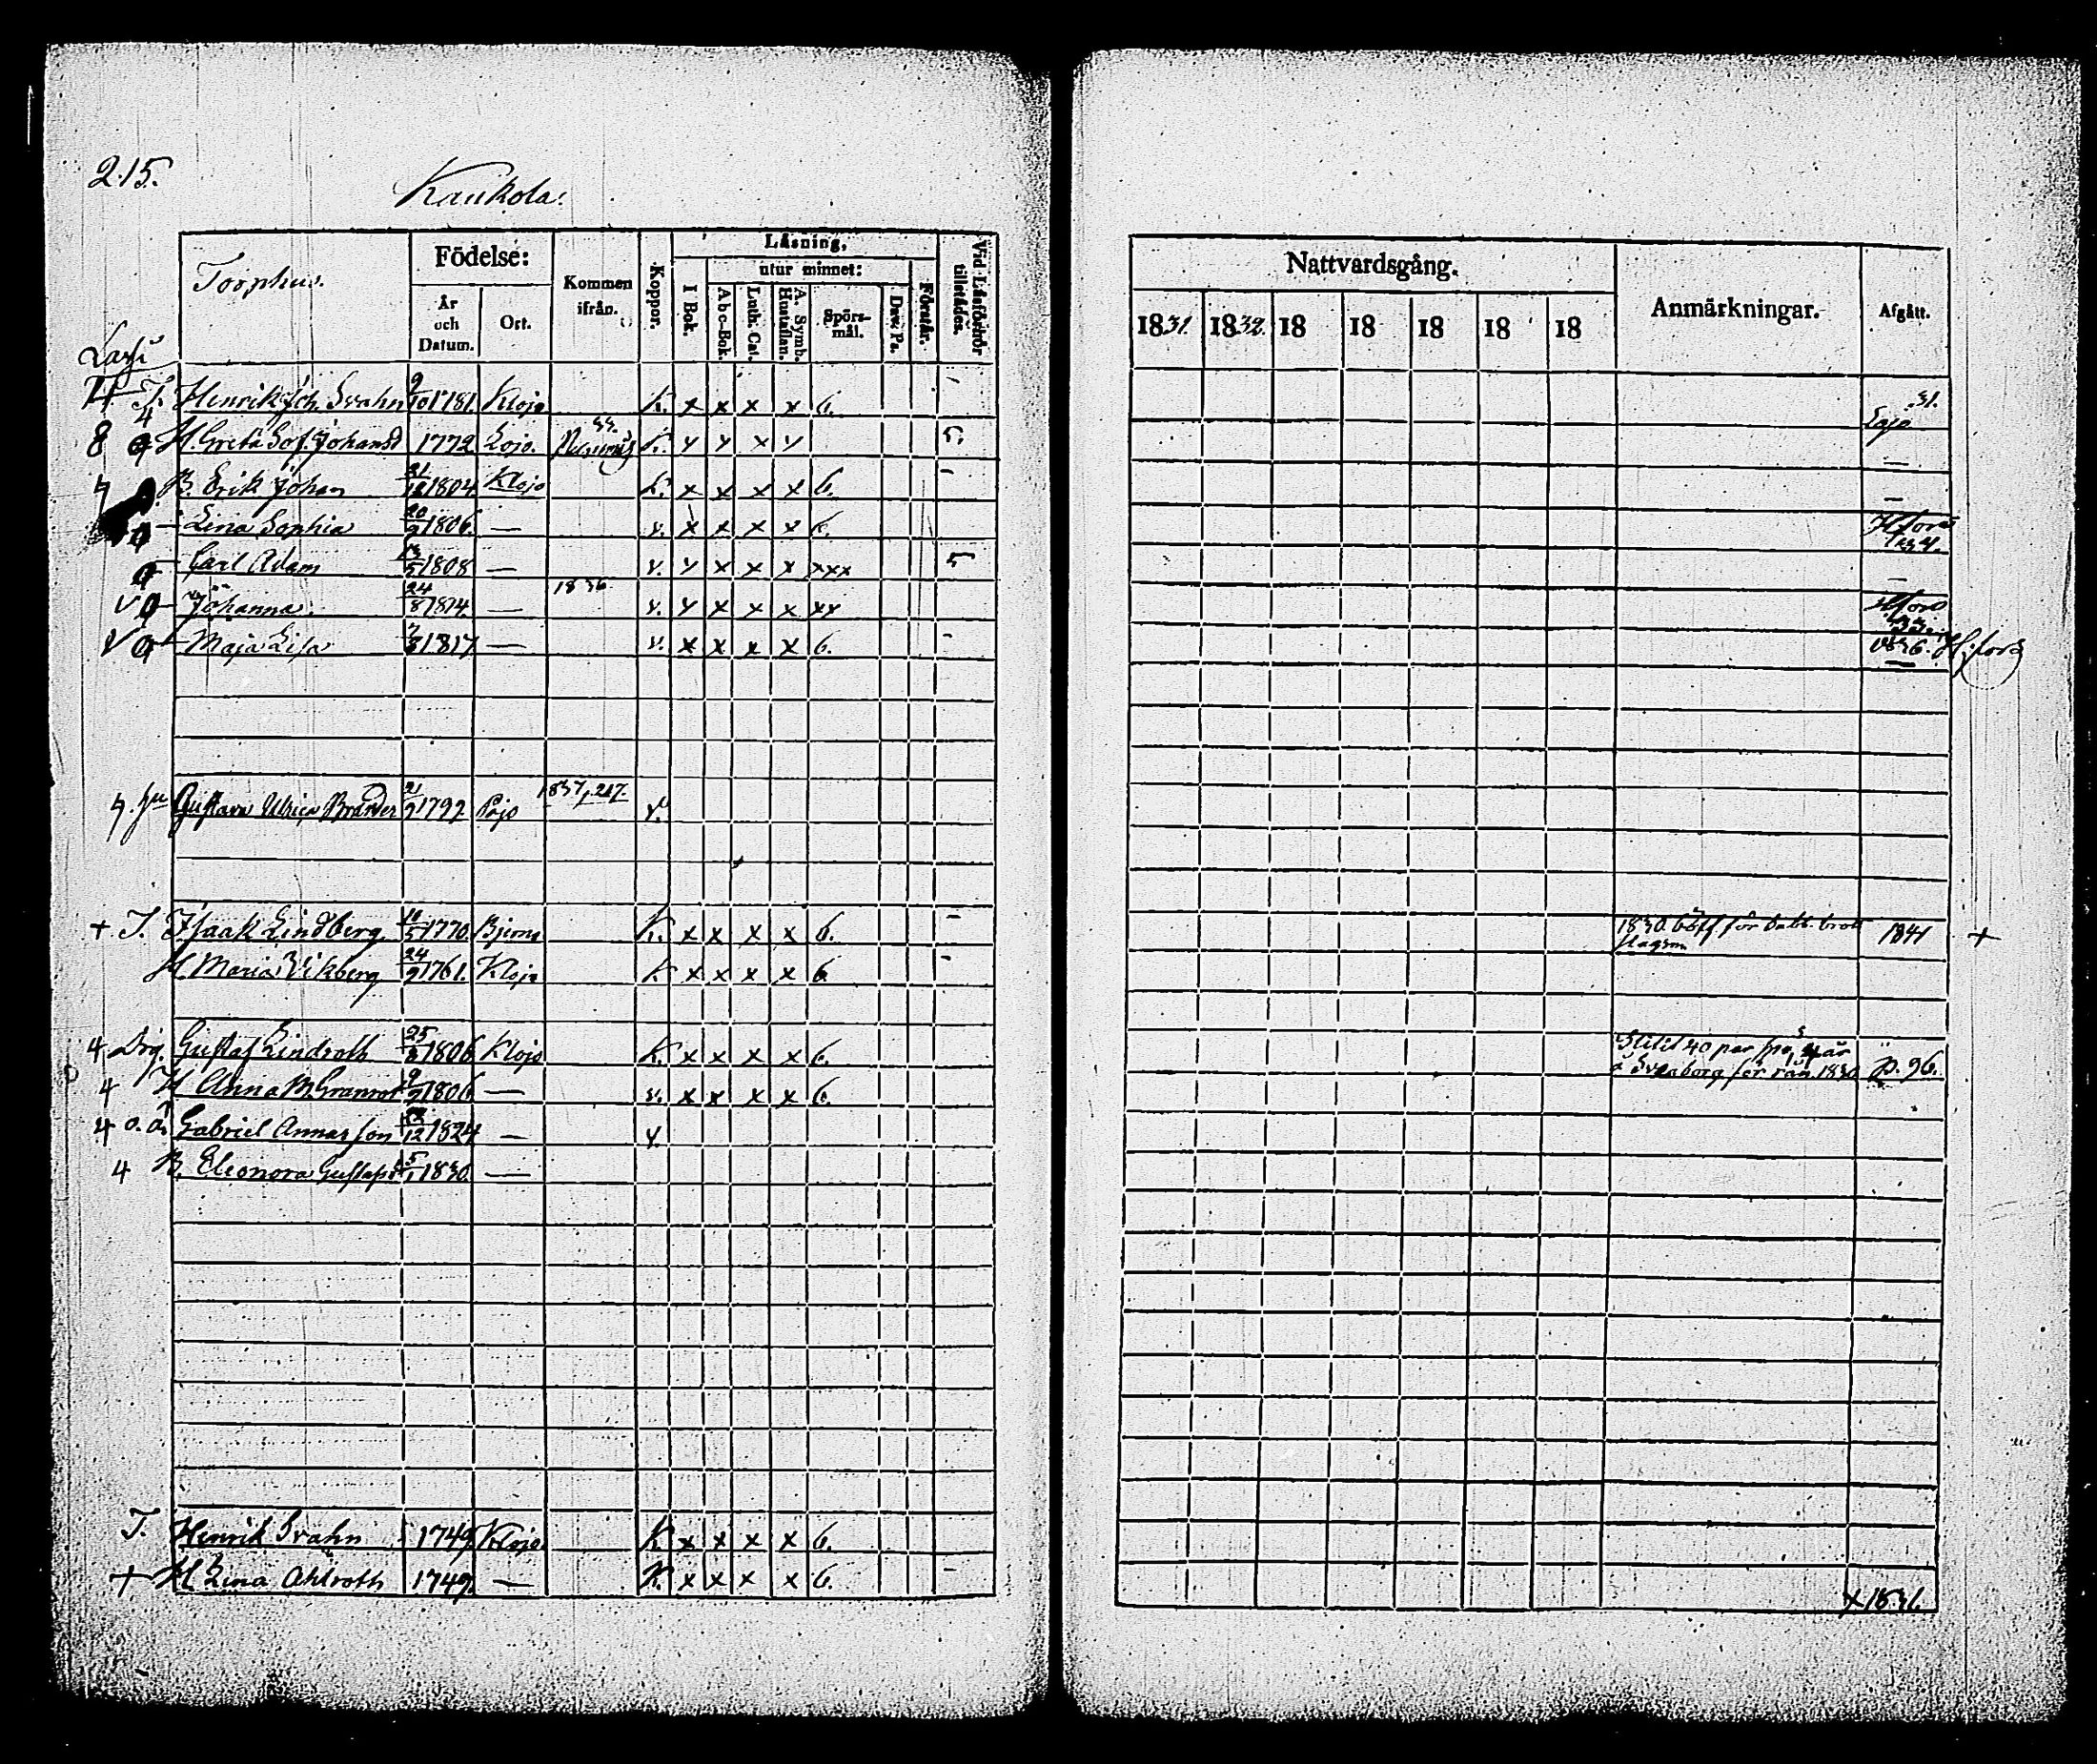 215.
Kaukola.
Torphus.
Födelse:
År och Datum.
Ort.
Kommen ifrån.
Koppor.
Läsning,
I Bok.
utur minnet:
Abc-Bok.
Luth. Cat.
A. Symb. Hustaflan.
Spörs-mål.
Dav. Ps.
Förstår.
Vid Läsförhör tillstädes.
T. Henrik Joh. Svahn 9/10 1781. Klojo K. x x x x 6. -
8 H. Greta Sof. Johansd 1772 Lojo. K. x x x x 5.
B. Erik Johan 21/12 1804 Klojo K. x x x x 6. -
- Lena Sophia 20/9 1806. — v. x x x x 6.
- Carl Adam 1808 — v. x x x x xxx 5
v - Johanna 24/8 1814. — 1836 v. x x x x xx
v - Maja Lisa 1817 — v. x x x x 6. -
Gustava Ulrica Brander 21/9 1792 Pojo 1837, 217. v.
+ T. Isaak Lindberg 10/5 1770. Bjerno K. x x x x 6. -
H. Maria Vikberg 24/9 1761. Klojo K x x x x 6 -
4 Drg. Gustaf Lindroth 25/8 1806 Klojo K. x x x x 6.
4 H Anna M. Granrot 9/9 1806 — v. x x x x 6.
4 o. ä. Gabriel Annasson 1824 — v.
4 B. Eleonora Gustafsd 5/1 1830. —
T. Henrik Svahn 1749. Klojo K x x x x 6.
+ H Lena Ahlroth 1749. — K. x x x x 6. -
Nattvardsgång.
Anmärkningar.
Afgått.
1831. 1832. 18 18 18 18 18
31.
Lojo
—
—
Hfors
—
Hfors
1836. H:fors
1830. för
1841 +
Slitit 40 par spö, är
å Sveaborg för rån 1830 p. 96.
x 1831.